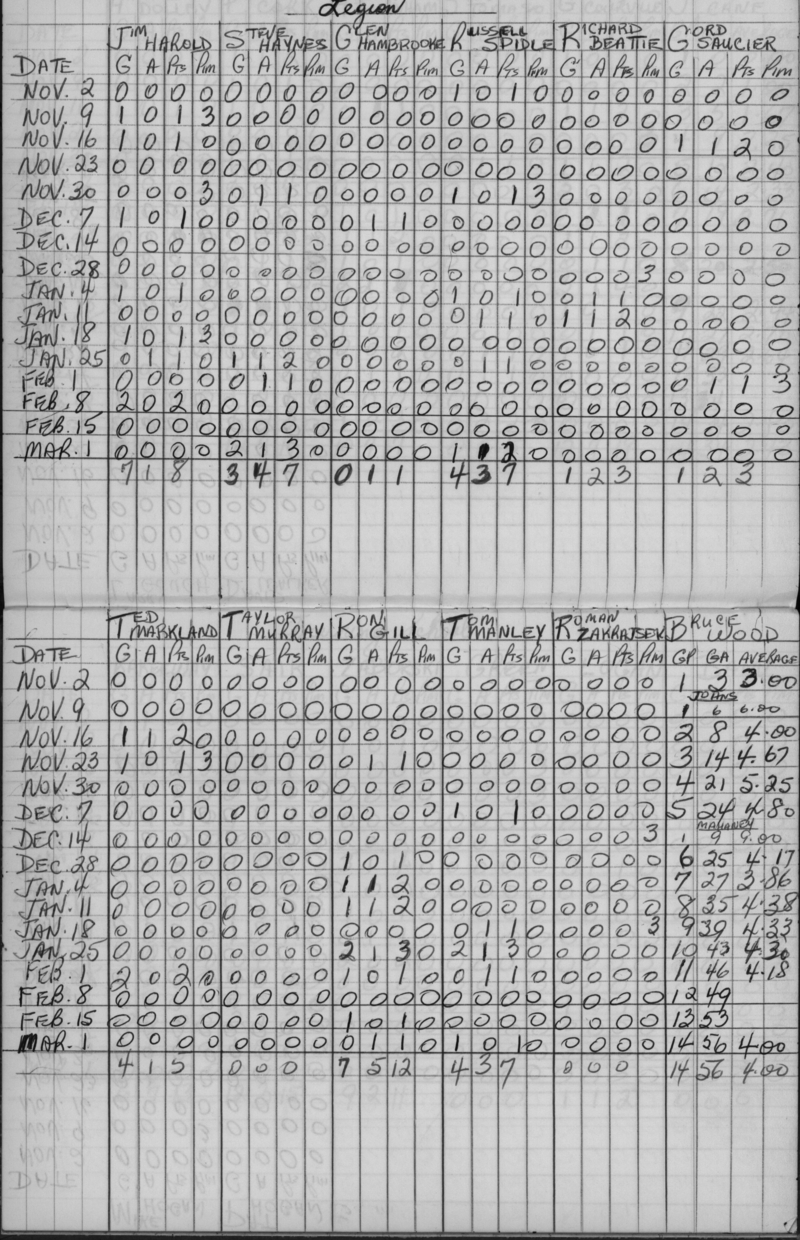 Legion
JIM HAROLD STEVE HAYNES GLEN HAMBROOKE RUSSELL SPIDLE RICHARD BEATTIE GORD SAUCIER
DATE G A Pts Pim G A Pts Pim G A Pts Pim G A Pts Pim G A Pts Pim G A Pts Pim
NOV. 2 0 0 0 0 0 0 0 0 0 0 0 0 1 0 1 0 0 0 0 0 0 0 0 0
NOV. 9 1 0 1 3 0 0 0 0 0 0 0 0 0 0 0 0 0 0 0 0 0 0 0 0
NOV. 16 1 0 1 0 0 0 0 0 0 0 0 0 0 0 0 0 0 0 0 0 1 1 2 0
NOV. 23 0 0 0 0 0 0 0 0 0 0 0 0 0 0 0 0 0 0 0 0 0 0 0 0
NOV. 30 0 0 0 3 0 1 1 0 0 0 0 0 1 0 1 3 0 0 0 0 0 0 0 0
DEC. 7 1 0 1 0 0 0 0 0 0 1 1 0 0 0 0 0 0 0 0 0 0 0 0 0
DEC. 14 0 0 0 0 0 0 0 0 0 0 0 0 0 0 0 0 0 0 0 0 0 0 0 0
DEC. 28 0 0 0 0 0 0 0 0 0 0 0 0 0 0 0 0 0 0 0 3 0 0 0 0
JAN. 4 1 0 1 0 0 0 0 0 0 0 0 0 1 0 1 0 0 1 1 0 0 0 0 0
JAN. 11 0 0 0 0 0 0 0 0 0 0 0 0 0 1 1 0 1 1 2 0 0 0 0 0
JAN. 18 1 0 1 3 0 0 0 0 0 0 0 0 0 0 0 0 0 0 0 0 0 0 0 0
JAN. 25 0 1 1 0 1 1 2 0 0 0 0 0 0 1 1 0 0 0 0 0 0 0 0 0
FEB. 1 0 0 0 0 0 1 1 0 0 0 0 0 0 0 0 0 0 0 0 0 0 1 1 3
FEB. 8 2 0 2 0 0 0 0 0 0 0 0 0 0 0 0 0 0 0 0 0 0 0 0 0
FEB. 15 0 0 0 0 0 0 0 0 0 0 0 0 0 0 0 0 0 0 0 0 0 0 0 0
MAR. 1 0 0 0 0 2 1 3 0 0 0 0 0 1 1 2 0 0 0 0 0 0 0 0 0
7 1 8 3 4 7 0 1 1 4 3 7 1 2 3 1 2 3
TED MARKLAND TAYLOR MURRAY RON GILL TOM MANLEY ROMAN ZAKRAJSEK BRUCE WOOD
DATE G A Pts Pim G A Pts Pim G A Pts Pim G A Pts Pim G A Pts Pim GP GA AVERAGE
NOV. 2 0 0 0 0 0 0 0 0 0 0 0 0 0 0 0 0 0 0 0 0 1 3 3.00
JOANS
NOV. 9 0 0 0 0 0 0 0 0 0 0 0 0 0 0 0 0 0 0 0 0 1 6 6.00
NOV. 16 1 1 2 0 0 0 0 0 0 0 0 0 0 0 0 0 0 0 0 0 2 8 4.00
NOV. 23 1 0 1 3 0 0 0 0 0 1 1 0 0 0 0 0 0 0 0 0 3 14 4.67
NOV. 30 0 0 0 0 0 0 0 0 0 0 0 0 0 0 0 0 0 0 0 0 4 21 5.25
DEC. 7 0 0 0 0 0 0 0 0 0 0 0 0 1 0 1 0 0 0 0 0 5 24 4.80
MAHANEY
DEC. 14 0 0 0 0 0 0 0 0 0 0 0 0 0 0 0 0 0 0 0 3 1 9 9.00
DEC. 28 0 0 0 0 0 0 0 0 1 0 1 0 0 0 0 0 0 0 0 0 6 25 4.17
JAN. 4 0 0 0 0 0 0 0 0 1 1 2 0 0 0 0 0 0 0 0 0 7 27 3.86
JAN. 11 0 0 0 0 0 0 0 0 1 1 2 0 0 0 0 0 0 0 0 0 8 35 4.38
JAN. 18 0 0 0 0 0 0 0 0 0 0 0 0 0 1 1 0 0 0 0 3 9 39 4.33
JAN. 25 0 0 0 0 0 0 0 0 2 1 3 0 2 1 3 0 0 0 0 0 10 43 4.30
FEB. 1 2 0 2 0 0 0 0 0 1 0 1 0 0 1 1 0 0 0 0 0 11 46 4.18
FEB. 8 0 0 0 0 0 0 0 0 0 0 0 0 0 0 0 0 0 0 0 0 12 49
FEB. 15 0 0 0 0 0 0 0 0 1 0 1 0 0 0 0 0 0 0 0 0 13 53
MAR. 1 0 0 0 0 0 0 0 0 0 1 1 0 1 0 1 0 0 0 0 0 14 56 4.00
4 1 5 0 0 0 7 5 12 4 3 7 0 0 0 14 56 4.00